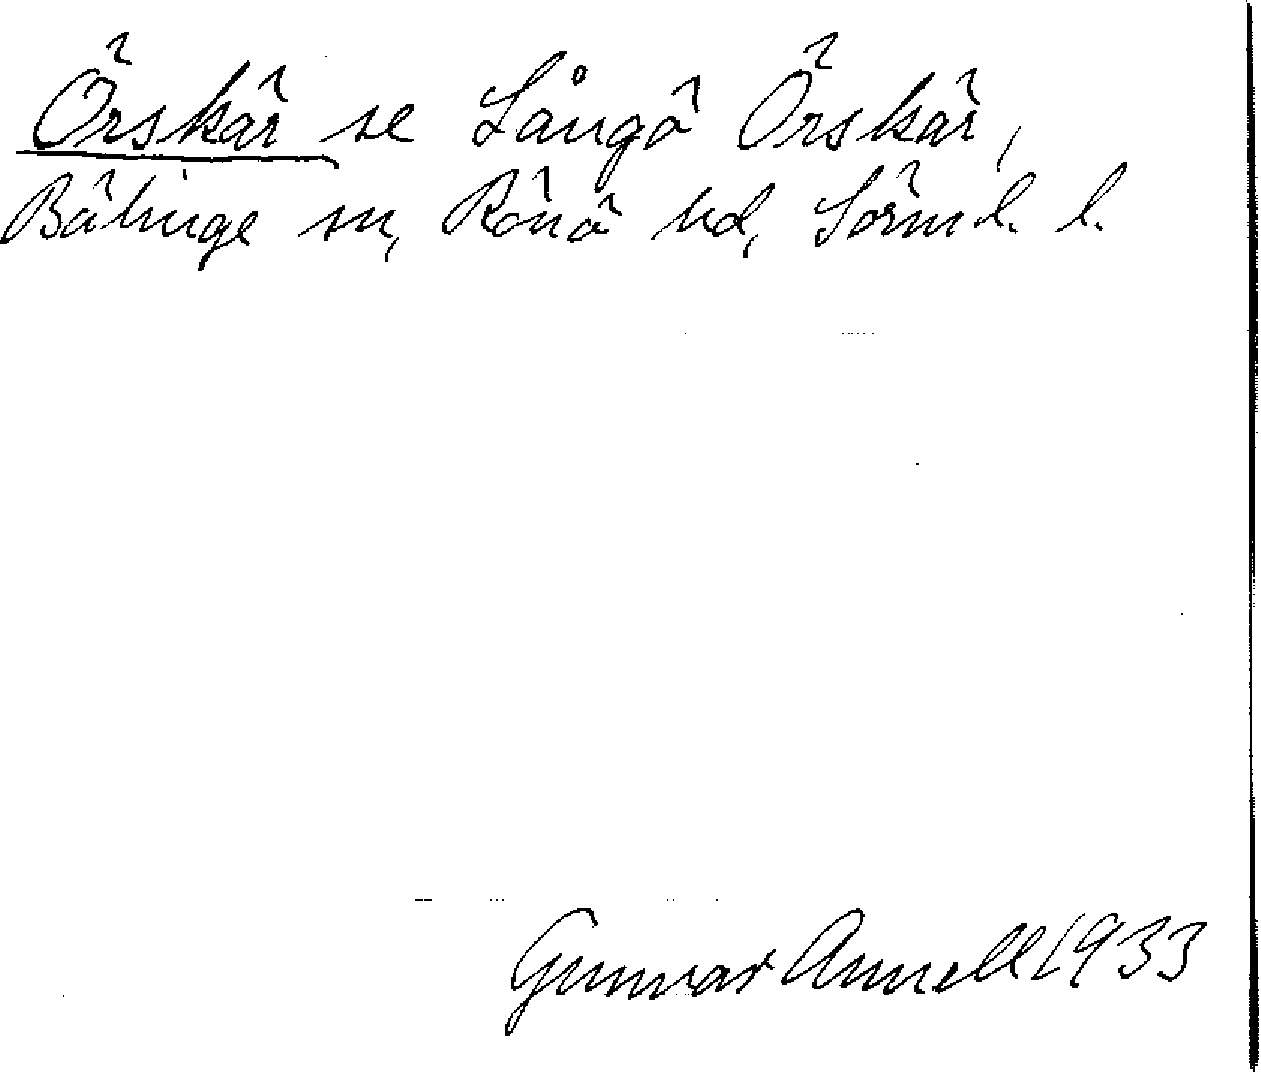 Örskär se Långö Örskär,
Bälinge sn, Rönö hd, Södml. l.
Gunnar Annell 1933